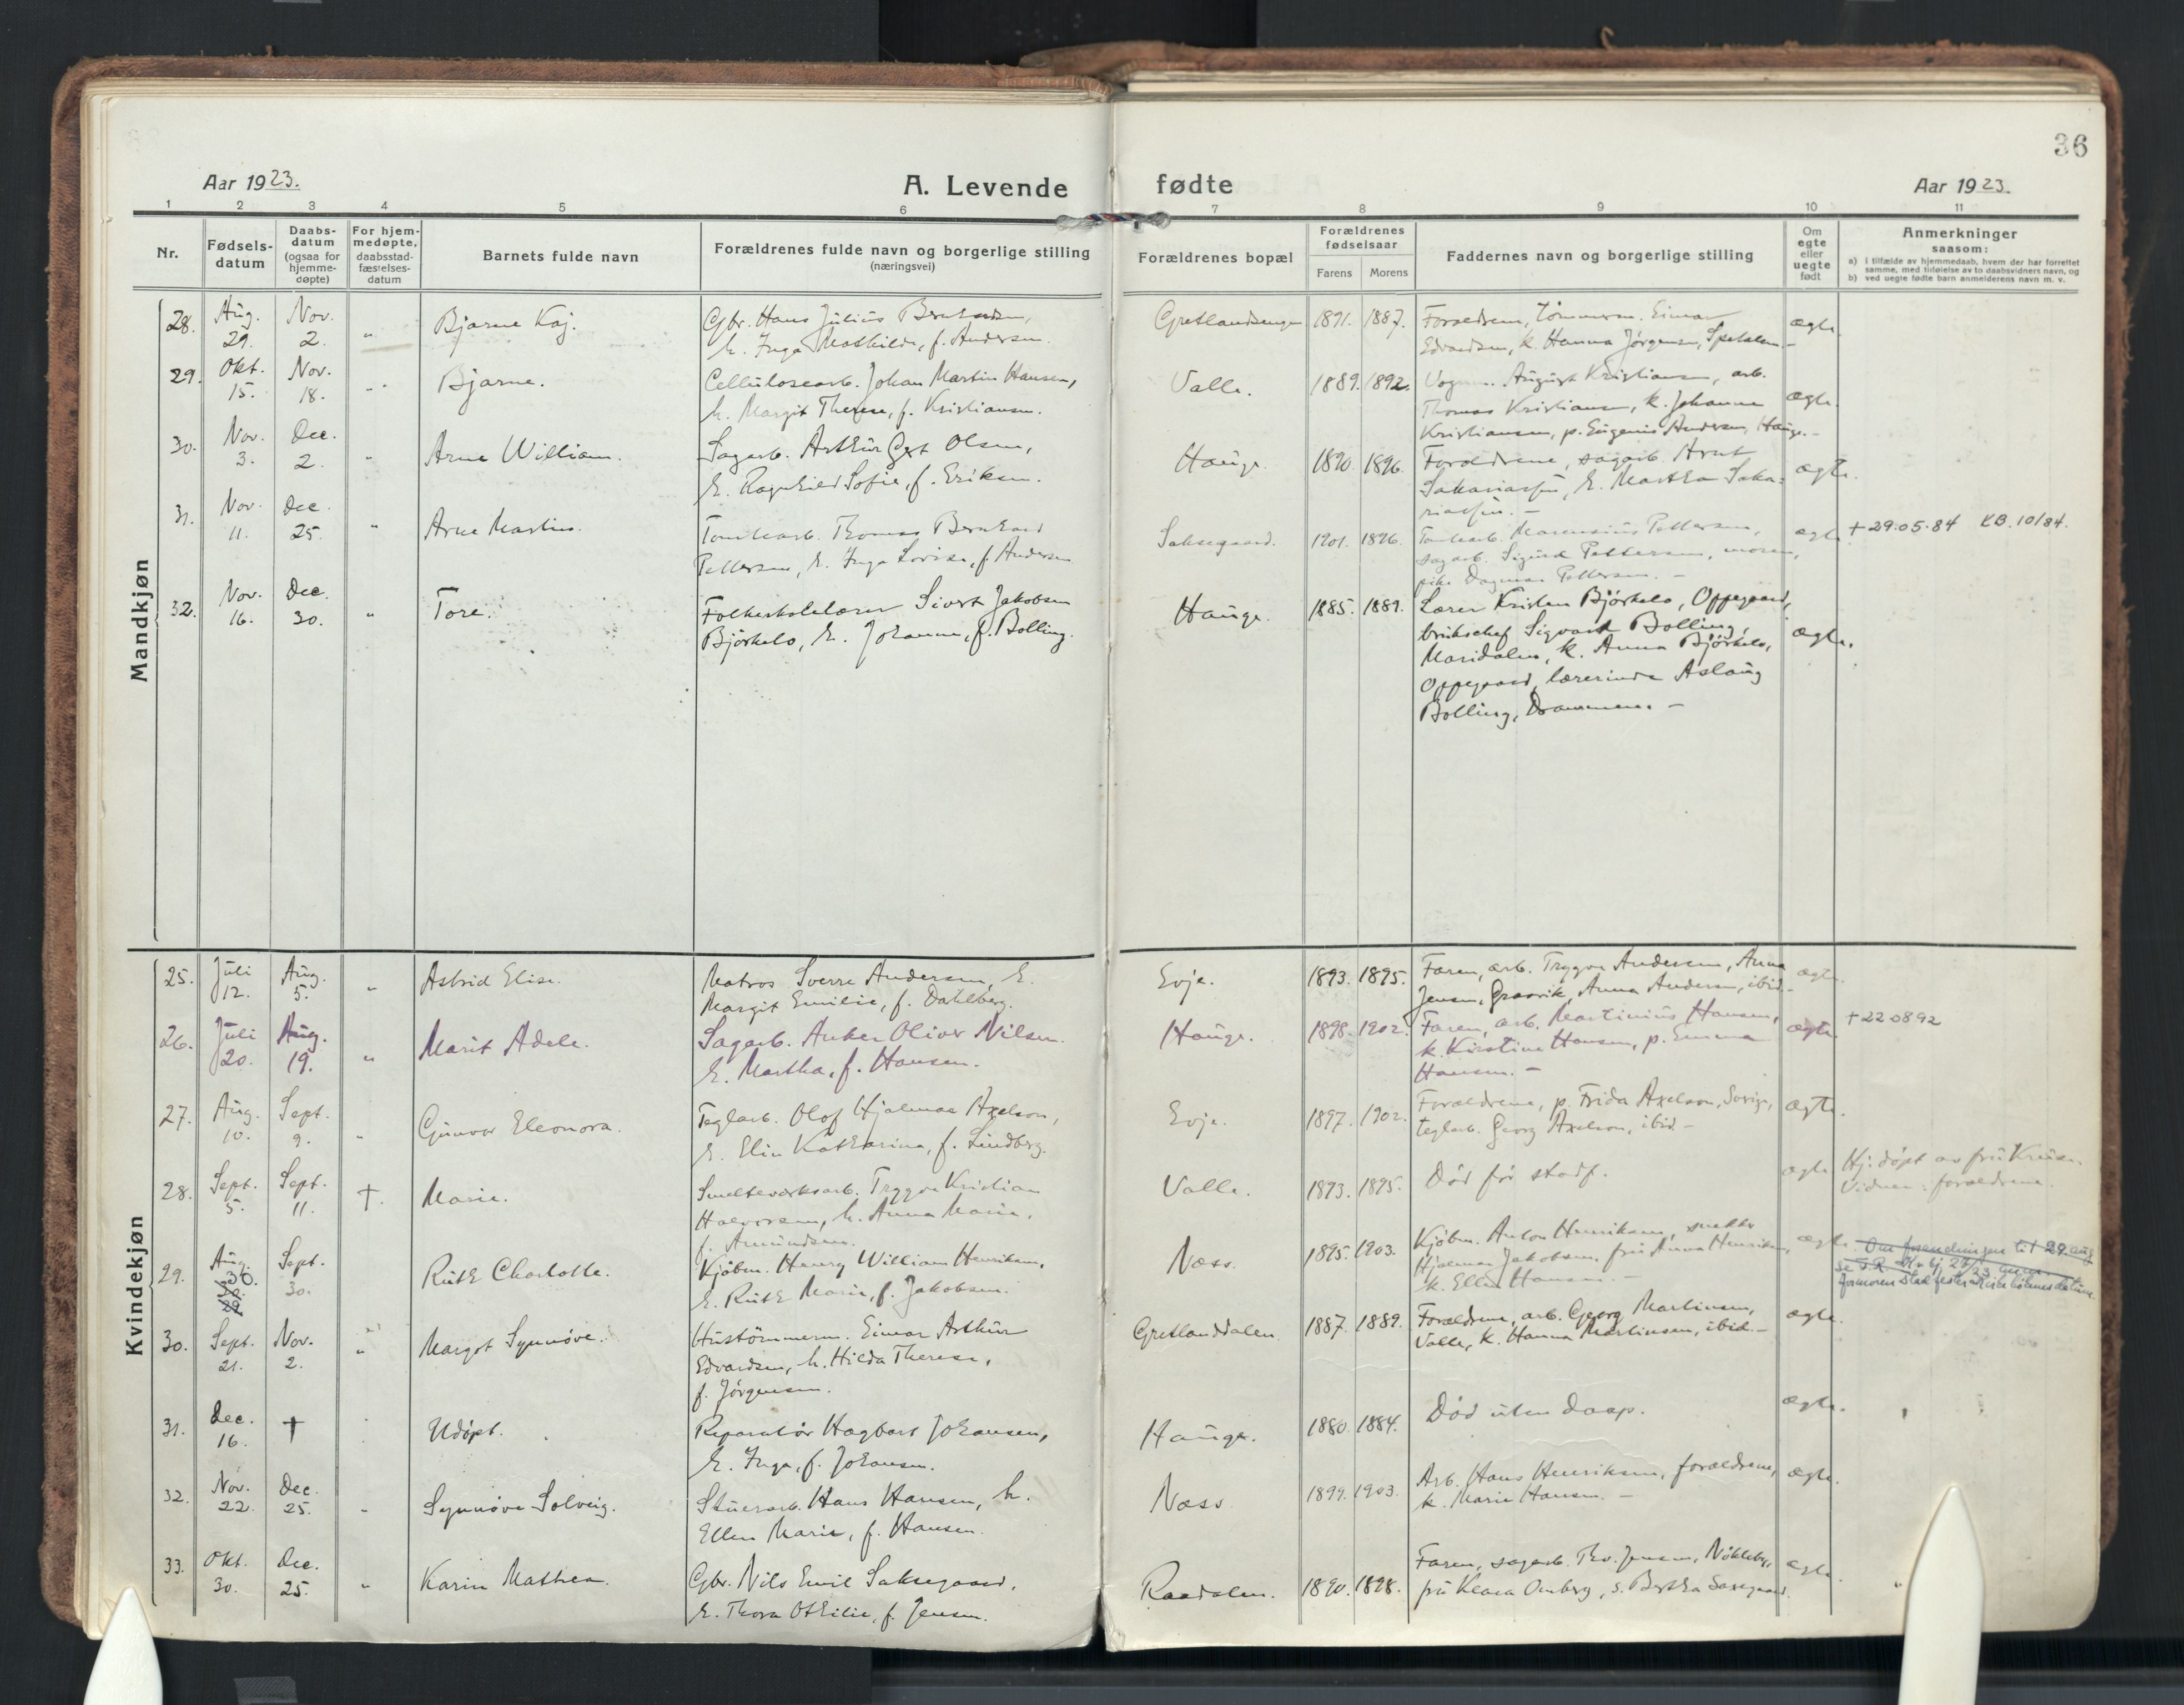 36
Aar 1923.
A. Levende fødte
Aar 1923.
1 2 3 4 5 6 7 8 9 10 11
Nr.
Fødsels-
datum
Daabs-
datum
(ogsaa for
hjemme-
døpte)
For hjem-
medøpte,
daabsstad-
fæstelses-
datum
Barnets fulde navn
Forældrenes fulde navn og borgerlige stilling
(næringsvei)
Forældrenes bopæl
Forældrenes
fødselsaar
Farens Morens
Faddernes navn og borgerlige stilling
Om
egte
eller
uegte
født
Anmerkninger
saasom:
a) i tilfælde av hjemmedaab, hvem der har forrettet
samme, med tilføielse av to daabsvidners navn, og
b) ved uegte fødte barn anmelderens navn m. v.
Mandkjøn
28. Aug. 29. Nov. 2. "
Bjarne Kaj.
Gbr. Hans Julius Berntsen,
h. Inga Mathilde, f. Andersen.
Gretlandsengen 1891. 1887.
Forældrene, tømmerm. Einar
Edvardsen, k. Hanna Jørgensen, Spetalen. –
ægte.
29. Okt. 15. Nov. 18. "
Bjarne.
Cellulosearb. Johan Martin Hansen,
h. Margit Therese, f. Kristiansen.
Valle. 1889. 1892.
Vognm. August Kristiansen, arb.
Thomas Kristiansen, k. Johanne
Kristiansen, p. Eugenie Andersen, Hauge. –
ægte.
30. Nov. 3. Dec. 2. "
Arne William.
Sagarb. Arthur Olsen,
h. Ragnhild Sofie, f. Eriksen.
Hauge. 1890. 1896.
Forældrene, sagarb. Arnt
Sakariassen, h. Martha Saka=
riassen. –
ægte.
31. Nov. 11. Dec. 25. "
Arne Martin.
Tomtearb. Thomas Bernhard
Pettersen, h. Inga Lovise, f. Andersen
Saksegaard. 1901. 1896.
Tomtearb. Marensius Pettersen,
sagarb. Sigurd Pettersen, moren,
pike Dagmar Pettersen. –
ægte.
+ 29.05.84 KB. 10/84.
32. Nov. 16. Dec. 30. "
Tore.
Folkeskolelærer Sivert Jakobsen
Bjørkelo, h. Johanne, f. Bolling.
Hauge. 1885. 1889.
Lærer Kristen Bjørkelo, Oppegaard,
brukschef Sigvard Bolling,
Maridalen, k. Anna Bjørkelo,
Oppegaard, lærerinde Aslaug
Bolling, Drammen. –
ægte.
Kvindekjøn
25. Juli 12. Aug. 5. "
Astrid Elise.
Matros Sverre Andersen, h.
Margit Emilie, f. Dahlberg.
Evje. 1893. 1895.
Faren, arb. Trygve Andersen, Anna
Jensen, Graavik, Anna Andersen, ibid. –
ægte.
26. Juli 20. Aug. 19. "
Marit Adele.
Sagarb. Anker Oliver Nilsen.
h. Martha, f. Hansen.
Hauge. 1898. 1902.
Faren, arb. Martinius Hansen,
k. Kirstine Hansen, p. Emma
Hansen. –
ægte.
+ 220892
27. Aug. 10. Sept. 9. "
Gunvor Eleonora.
Teglarb. Olof Hjalmar Axelson,
h. Elin Katharina, f. Lindberg.
Evje. 1897. 1902.
Forældrene, p. Frida Axelson, Sverige,
teglarb. Georg Axelson, ibid. –
ægte.
28. Sept. 5. Sept. 11. †.
Marie.
Smelteverksarb. Trygve Kristian
Halvorsen, h. Anna Marie,
f. Amundsen.
Valle. 1893. 1895.
Død før stadf.
ægte.
Hj. døpt av fru
Vidner: forældrene.
29. Aug. 30. 29. Sept. 30.
Ruth Charlotte.
Kjøbm. Henry William Henriksen,
h. Ruth Marie, f. Jakobsen.
Næss. 1895. 1903.
Kjøbm. Anton Henriksen, snekker
Hjalmar Jakobsen, fru Anna Henriksen,
k. Ellen Hansen. –
ægte.
Om forandringen til 29 aug
30. Sept. 21. Nov. 2. "
Margot Synnøve.
Hustømmerm. Einar Arthur
Edvardsen, h. Hilda Therese,
f. Jørgensen.
Gretlanddalen 1887. 1889.
Forældrene, arb. Georg Martinsen,
Valle, k. Hanna Martinsen, ibid. –
ægte.
31. Dec. 16. †
Udøpt.
Reparatør Hagbart Johansen,
h. Inga, f. Johansen.
Hauge. 1880. 1884.
Død uten daap.
ægte.
32. Nov. 22. Dec. 25. "
Synnøve Solveig.
Stuerarb. Hans Hansen, h.
Ellen Marie, f. Hansen.
Næss 1899. 1903.
Arb. Hans Henriksen, forældrene,
k. Marie Hansen. –
ægte.
33. Okt. 30. Dec. 25. "
Karin Mathea.
Gbr. Nils Emil Saksegaard,
h. Thora Othilie, f. Jensen.
Raadalen. 1890. 1898.
Faren, sagarb. Thv. Jensen, Nøkleby,
fru Klara Omberg, s. Bertha Saxegaard.
ægte.